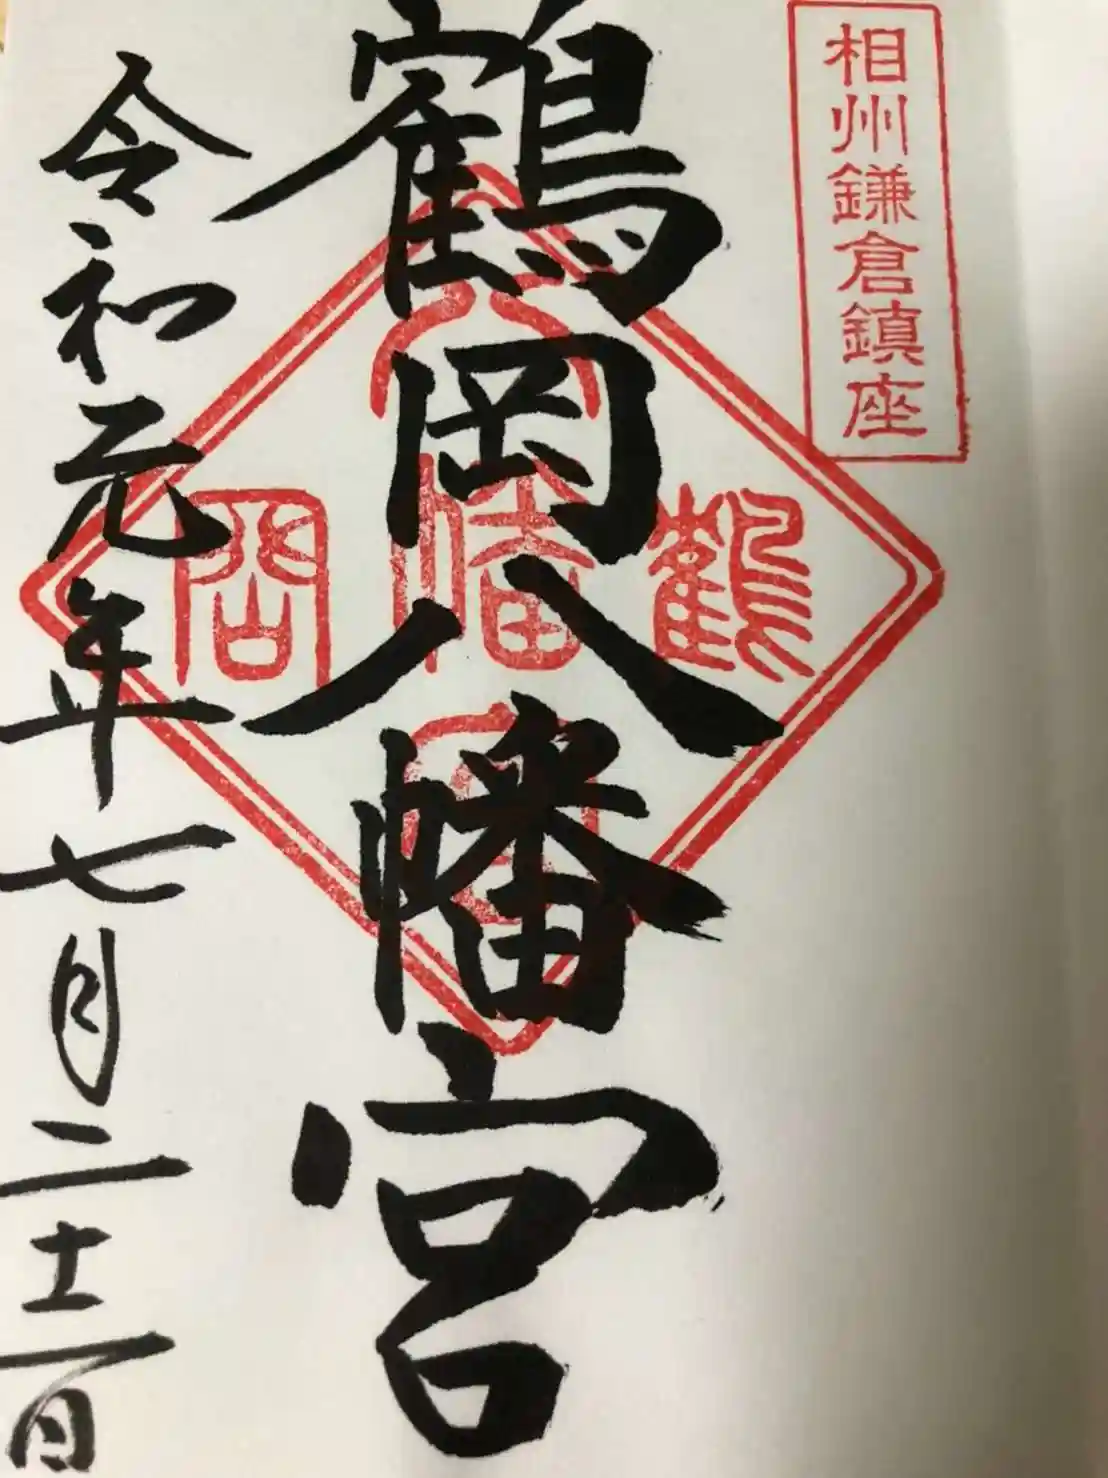 相州鎌倉鎮座
鶴岡八幡宮
鶴岡
八幡宮
令和元年七月二十二日